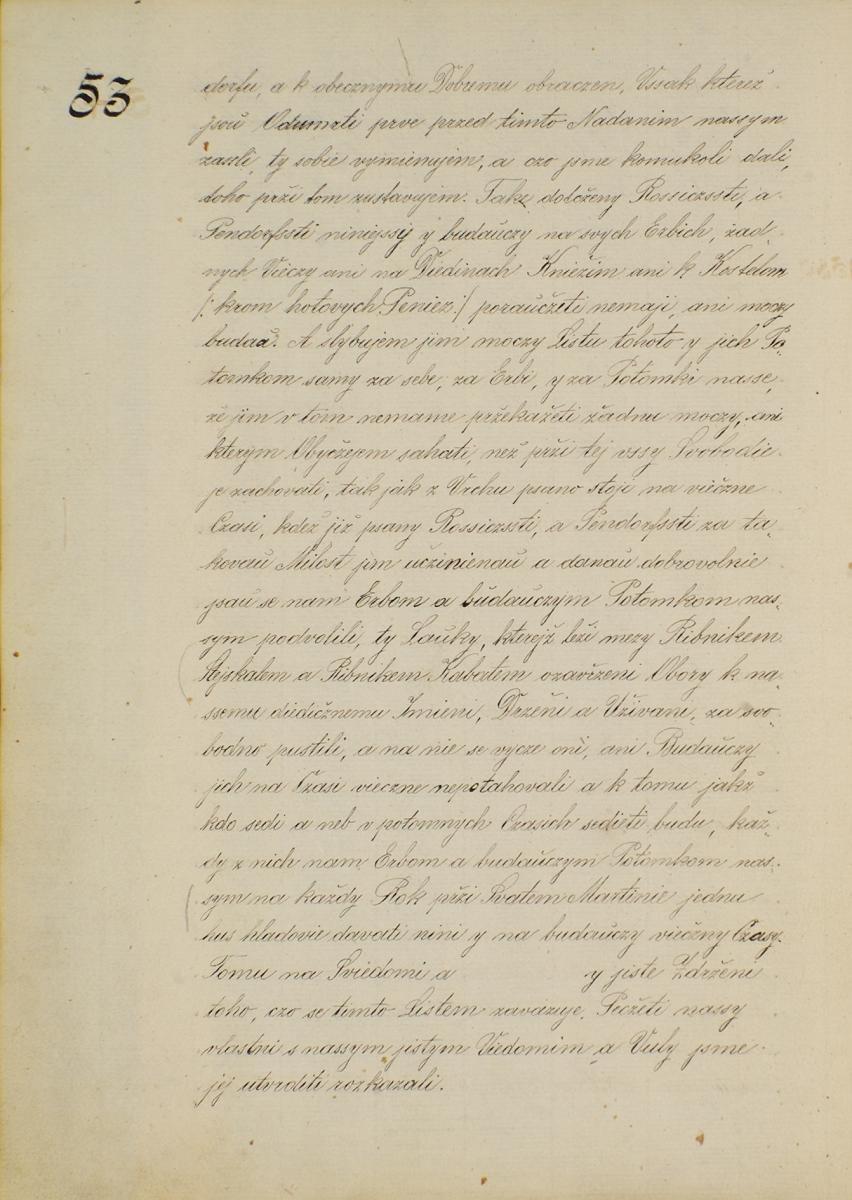 53
dorfu, a k obecznymu Dobremu obraczen, Vssak kterež
jsou Odumrti prve przed timto Nadanim nassym
zassli, ty sobie vymienujem, a czo jsme komukoli dali,
tohoprži tom zustavujem. Takz dotčženy Rossiczssti, a
Pendorfssti niniejssij y budaučzy na svych Erbich, žad-
nych Vieiczy ani na Diedinach Kniežim ani k Kostelom
/: krom hotovych Peniez :/ poraučzeti nemaji, ani moczy
budau. A slybujem jim moczy Listu tohoto y jich Po-
tomkom samy za sebe, za Erbi, y za Potomki nasse,
že jim v tom nemame pržekažeti žadnu moczy, ani
kterym Obyčžejem sahati, než prži tej vssy Svobodie
je zachovati, tak jak z Vrchu psano stoji na viečzne
Czasi, kdež již psany Rossiczssti, a Pendorfssti za ta-
kovau Milost jim uczinienau a danau dobrovolnie
jsau se nam Erbom a budauczym Potomkom nas-
sym podvolili, ty Lauky, kterejž leži mezy Ribnikem
Stejskalem a Ribnikem Kabatem ozavrženi Obory k na-
ssemu diedičznemu Jmieni, Drženi a Uživani, za svo-
bodno pustili, a na nie se vycze oni, ani Budaučzy
jich na Czasi vieczne nepotahovali a k tomu jakž
kdo sedi a neb v potomnych Czasich sedieti budu, kaž-
dy z nich nam Erbom a budauczym Potomkom nas-
sym na každy Rok prži Svatem Martinie jednu
hus hladovie davati nini y na budauczy viečzny Czasy.
Tomu na Sviedomi a y jiste Zdrženi
toho, czo se timto Listem zavazuje, Pečžeti nassy
vlastni s nassym jistym Viedomim a Vuly jsme
jej utvrditi rozkazali.